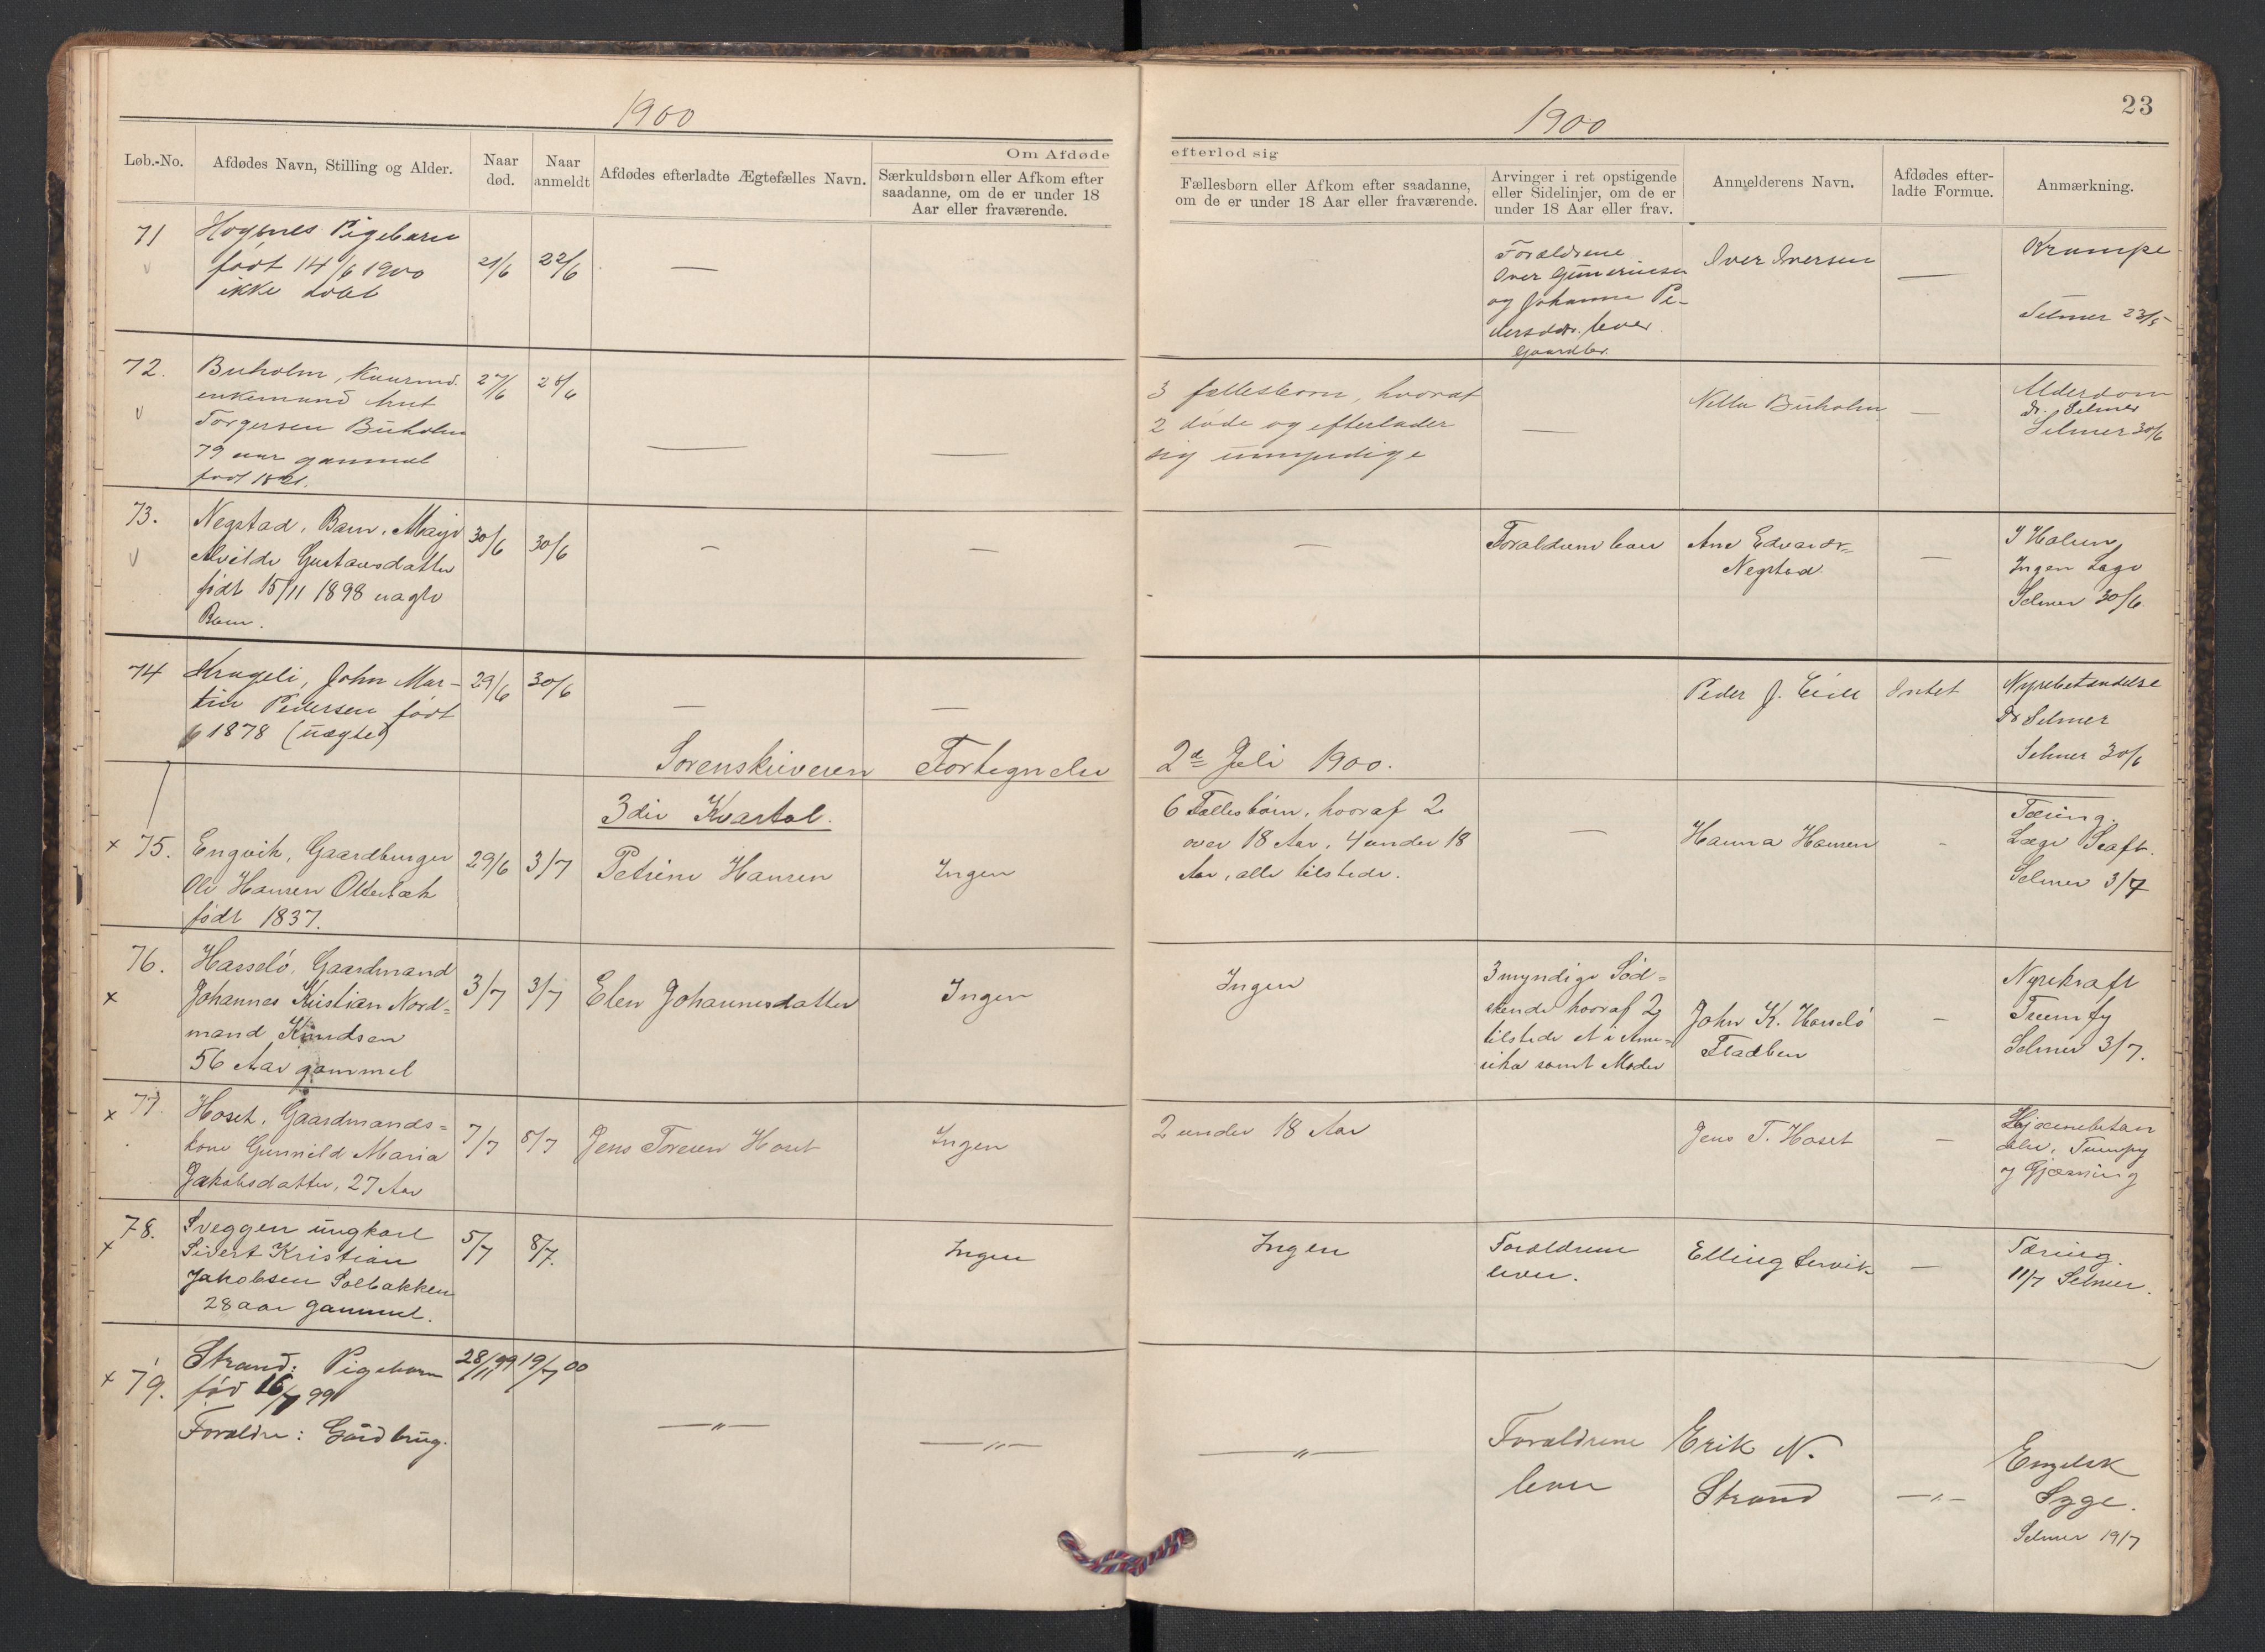 1900
Løb.-No.
Afdødes Navn, Stilling og Alder.
Naar død.
Naar anmeldt
Afdødes efterladte Ægtefælles Navn.
Om Afdøde
Særkuldsbørn eller Afkom efter
saadanne, om de er under 18
Aar eller fraværende.
71
Pigebarn
født 14/6 1900
ikke døbt
21/6
22/6
—
72.
Buholm, Kaarmd.
enkemand
Torgersen Buholm
79 aar gammel
født 1821.
27/6
28/6
—
—
73.
Negstad, Barn,
Alvilde Gustavsdatter
født 15/11 1898 uægte
Barn.
30/6
30/6
—
—
74
John Mar-
tin Pedersen født
1878 (uægte)
29/6
30/6
—
—
Sorenskriveren Fortegnelse
3die Kvartal.
x 75.
Engvik, Gaardbruger
Ole Hansen
født 1837.
29/6
3/7
Petrine Hansen
Ingen
76.
x
Hasselö, Gaardmand
Johannes Kristian Nord=
mand Knudsen
56 Aar gammel
3/7
3/7
Elen Johannesdatter
Ingen
77.
x
Hoset, Gaardmands=
kone Gunnild Maria
Jakobsdatter, 27 Aar
7/7
8/7
Jens Toresen Hoset
Ingen
78.
x
Sveggen ungkarl
Sivert Kristian
Jakobsen Solbakken
28 aar gammel.
5/7
8/7.
Ingen
x 79.
Strand: Pigebarn
fød 16/7 99
Forældre: Gårdbrug.
28/11 99
19/7 00
—"—
—"—
23
1900
efterlod sig
Fællesbørn eller Afkom efter saadanne,
om de er under 18 Aar eller fraværende.
Arvinger i ret opstigende
eller Sidelinjer, om de er
under 18 Aar eller frav.
Anmelderens Navn.
Afdødes efter-
ladte Formue.
Anmærkning.
Forældrene
Iver
og Johanna Pe-
dersdtr. lever
Gaardbr.
Iver Iversen
—
Krampe
Selmer
3 fællesbørn, hvoraf
2 døde og efterlader
sig umyndige
—
Buholm
—
Alderdom
Dr. Selmer
Selmer 30/6
—
Forældrene lever
Ane Edvards=
Negstad
—
Ingen Læge
Selmer 30/6
Peder J. Eide
Intet
Nyrebetændelse
Dr Selmer
Selmer 30/6
2de Juli 1900.
6 Fællesbörn, hvoraf 2
over 18 Aar, 4 under 18
Aar, alle tilstede.
—
Hanna Hansen
-
Tæring.
Læge
Selmer 3/7
Ingen
3 myndige Söd=
skende hvoraf 2
tilstede et i Ame=
rika samt Moder
John K. Hasselö
—
Nyrekræft
Selmer 3/7.
2 under 18 Aar
Jens T. Hoset
—
Hjærnebetæn
delse,
og
Ingen
Forældrene
lever.
Elling
—
Tæring.
11/7 Selmer.
—"—
Forældrene
lever
Erik N.
Strand
—"—
Engelsk
Syge.
Selmer 19/7